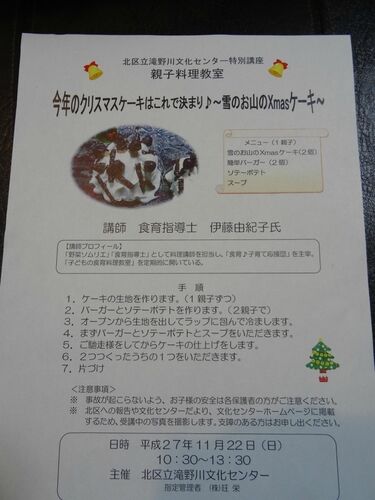 北区立滝野川文化センター特別講座
親子料理教室
今年のクリスマスケーキはこれで決まり♪～雪のお山のXmasケーキ～
メニュー（１親子）
雪のお山のXmasケーキ（２個）
簡単バーガー（２個）
ソテーポテト
スープ
講師　食育指導士　伊藤由紀子氏
【講師プロフィール】
「野菜ソムリエ」「食育指導士」として料理講師を担当。「食育♪子育て応援団」を主宰。
「子どもの食育料理教室」を定期的に開いている。
手　順
１．ケーキの生地を作ります。（１親子ずつ）
２．バーガーとソテーポテトを作ります。（２親子で）
３．オーブンから生地を出してラップに包んで冷まします。
４．まずバーガーとソテーポテトとスープをいただきます。
５．ご馳走様をしてからケーキの仕上げをします。
６．２つつくったうちの１つをいただきます。
７．片づけ
＜注意事項＞
※　事故が起こらないよう、お子様の安全は各保護者の方がご注意ください。
※　北区への報告や文化センターだより、文化センターホームページに掲載
するため、受講中の写真を撮影します。支障のある方はお申し出ください。
日時　平成２７年１１月２２日（日）
１０：３０～１３：３０
主催　北区立滝野川文化センター
指定管理者　（株）旺　栄